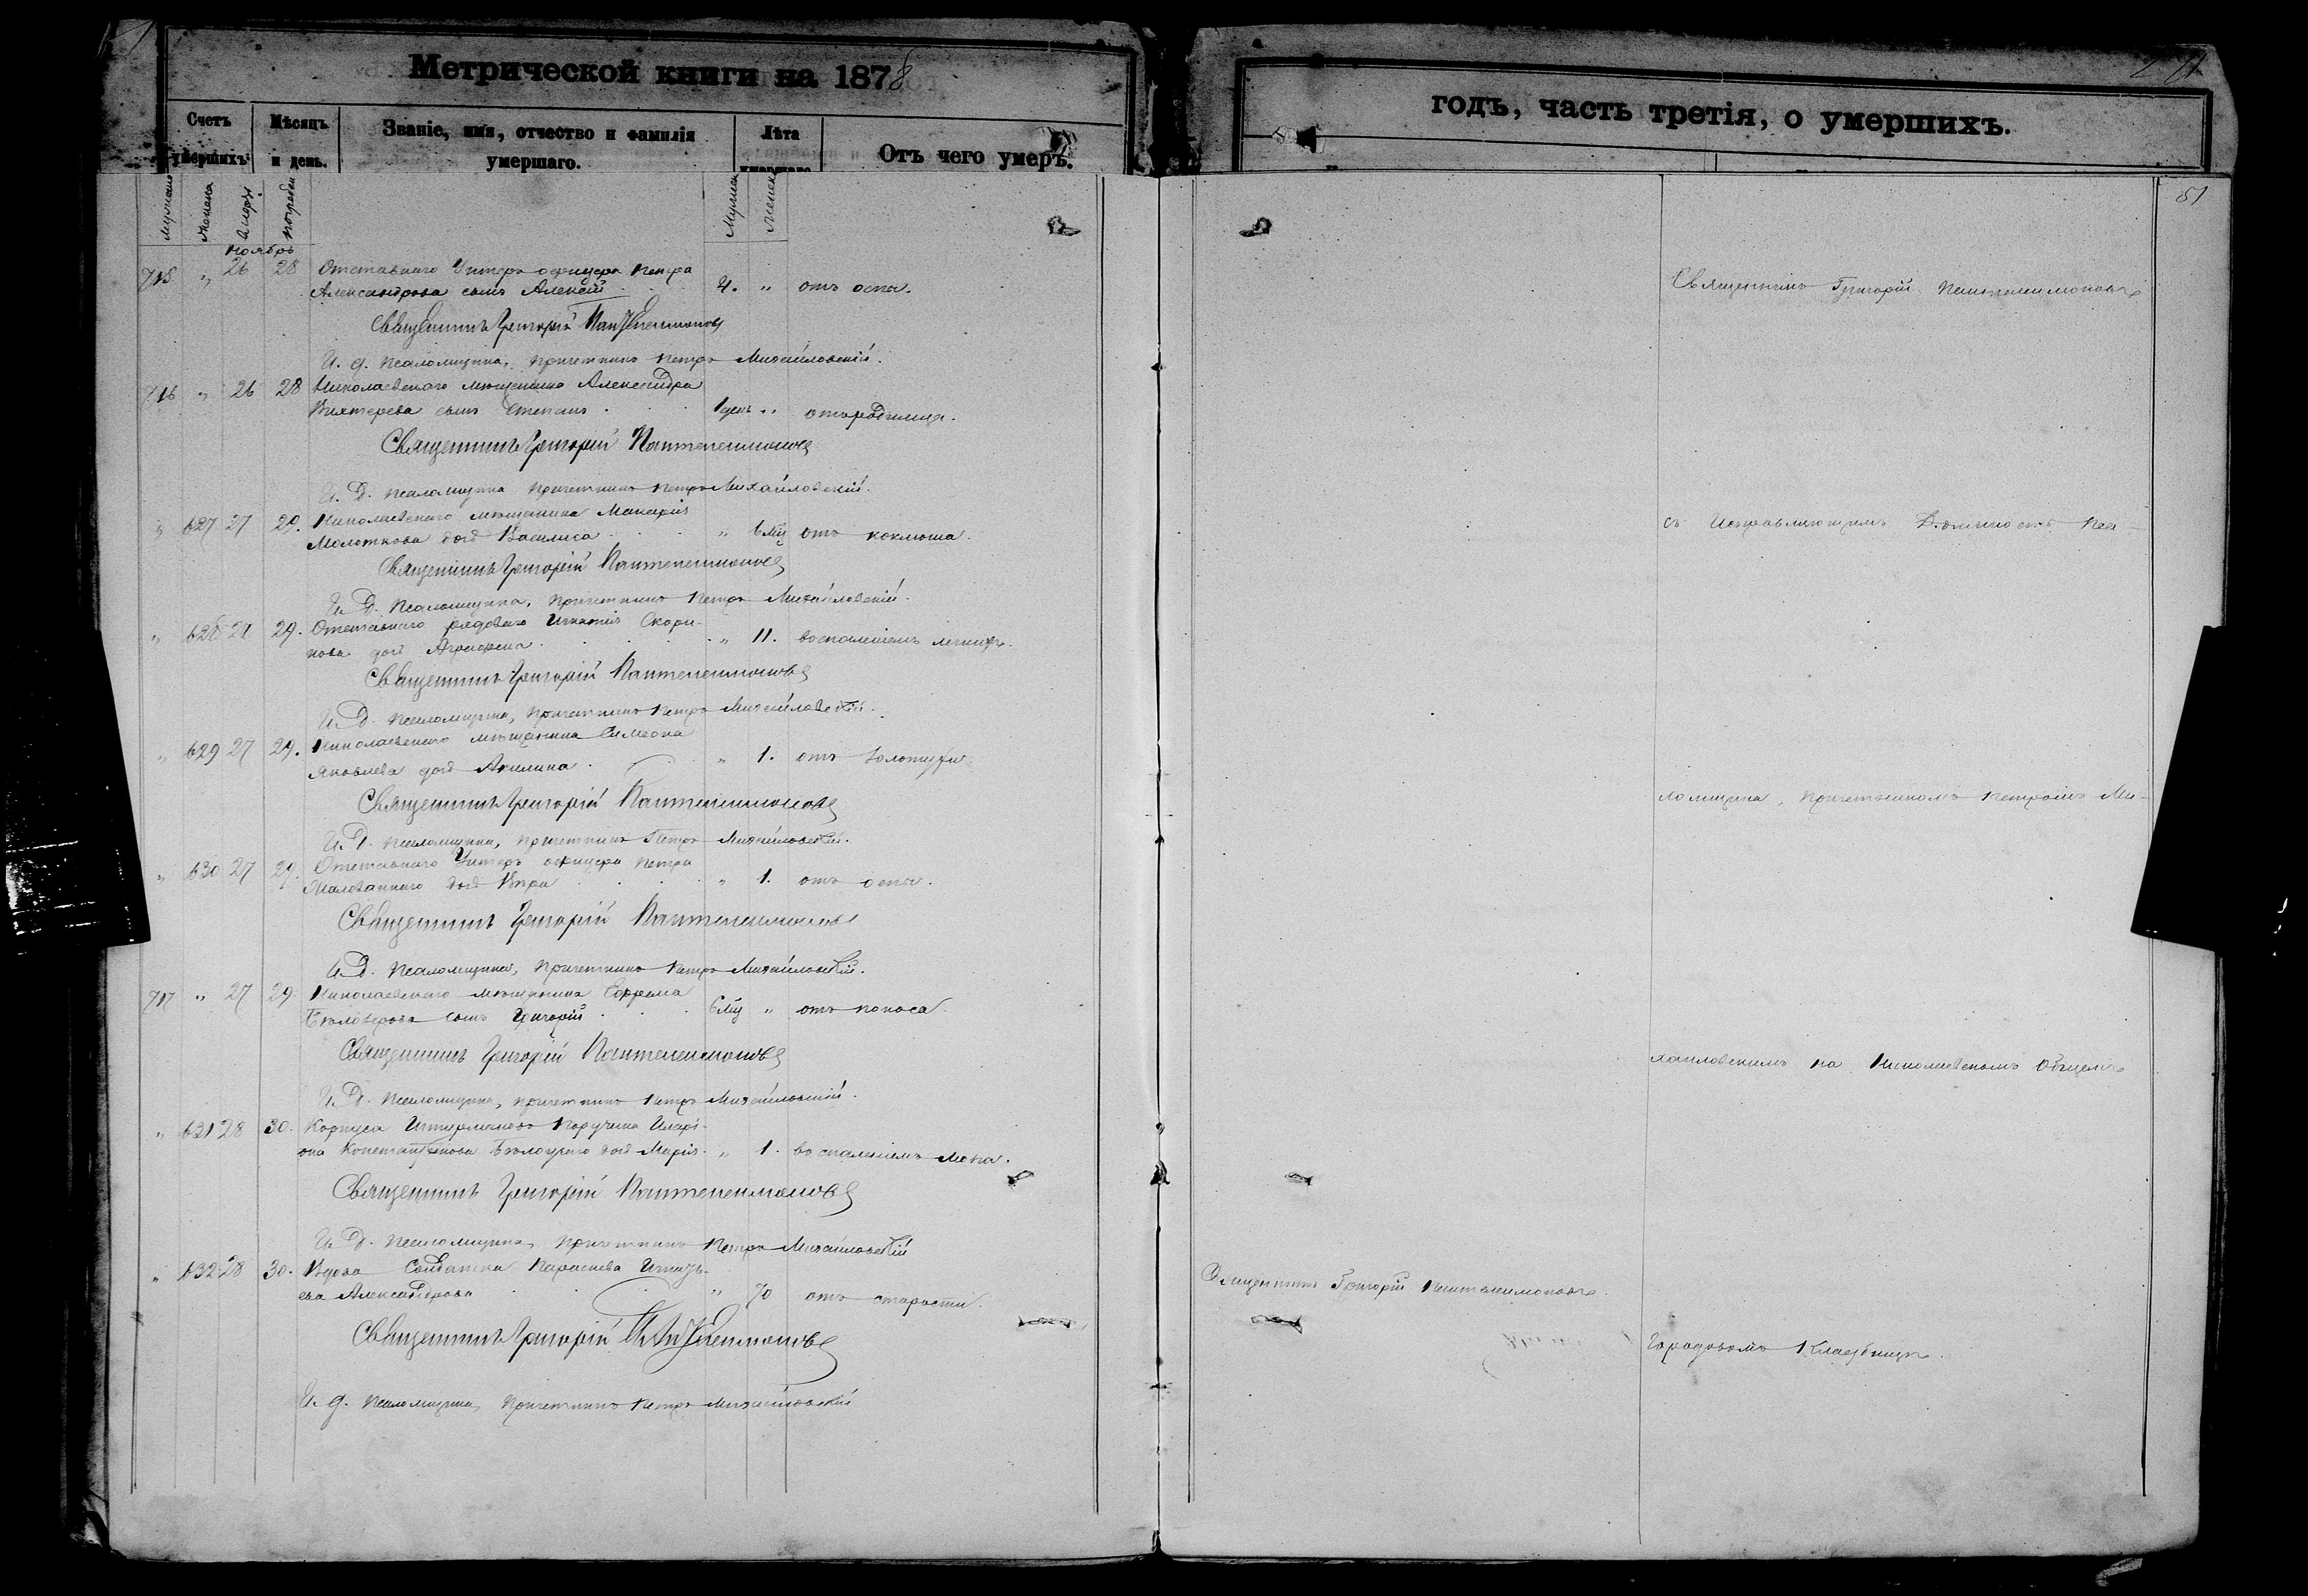 Метрической книги на 1878
Счетъ умершихъ
Мѣсяцъ и день.
Званіе, имя, отчество и фамилія умершаго.
Лѣта умершаго
Отъ чего умеръ.
Ноябрь
715 " 26 28 Отставнаго Унтеръ офицера Петра
Александрова сынъ Алексѣй 4. " отъ оспы.
Священникъ Григорій Пантелеимоновъ
И. д. Псаломщика, Причетникъ Петръ Михайловскій.
716 " 26 28 Николаевскаго мѣщанина Александра
Вихтерева сынъ Степанъ 1 день " отъ родимца.
Священникъ Григорій Пантелеимоновъ
И. Д. Псаломщика Причетникъ Петръ Михайловскій.
" 627 27 29. Николаевскаго мѣщанина Макарія
Молоткова дочь Василиса " 6 мц отъ коклюша.
Священникъ Григорій Пантелеимоновъ
И. Д. Псаломщика, Причетникъ Петръ Михайловскій.
" 628 27 29. Отставнаго рядоваго Игнатія Скори-
кова дочь Агрипина " 11. воспаленіемъ легкихъ.
Священникъ Григорій Пантелеимоновъ
И. Д. Псаломщика, Причетникъ Петръ Михайловскій.
" 629 27 29. Николаевскаго мѣщанина Симеона
Яковлева дочь Акилина " 1. отъ золотухи.
Священникъ Григорій Пантелеимоновъ
И. Д. Псаломщика, Причетникъ Петръ Михайловскій.
" 630 27 29. Отставнаго Унтеръ офицера Петра
Малованнаго дочь Вѣра " 1. отъ оспы.
Священникъ Григорій Пантелеимоновъ
И. Д. Псаломщика, Причетникъ Петръ Михайловскій.
717 " 27 29. Николаевскаго мѣщанина Ефрема
сынъ Григорій 6 мц " отъ поноса.
Священникъ Григорій Пантелеимоновъ
И. Д. Псаломщика, Причетникъ Петръ Михайловскій.
" 631 28 30. Корпуса Штурмановъ Поручика Иларі-
она Константинова дочь Марія " 1. воспаленіемъ мозга.
Священникъ Григорій Пантелеимоновъ
И. Д. Псаломщика, Причетникъ Петръ Михайловскій
" 632 28 30. Вдова Солдатка Параскева Игнать-
ева Александрова " 70 отъ старости.
Священникъ Григорій Пантелеимоновъ
И. д. Псаломщика, Причетникъ Петръ Михайловскій
годъ, часть третія, о умершихъ.
81
Священникъ Григорій Пантелеимоновъ
съ Исправляющимъ Должность Пса-
ломщика, Причетникомъ Петромъ Ми-
хайловскимъ на Николаевскомъ Общемъ
Священникъ Григорій Пантелеимоновъ.
Городовомъ Кладбищѣ.